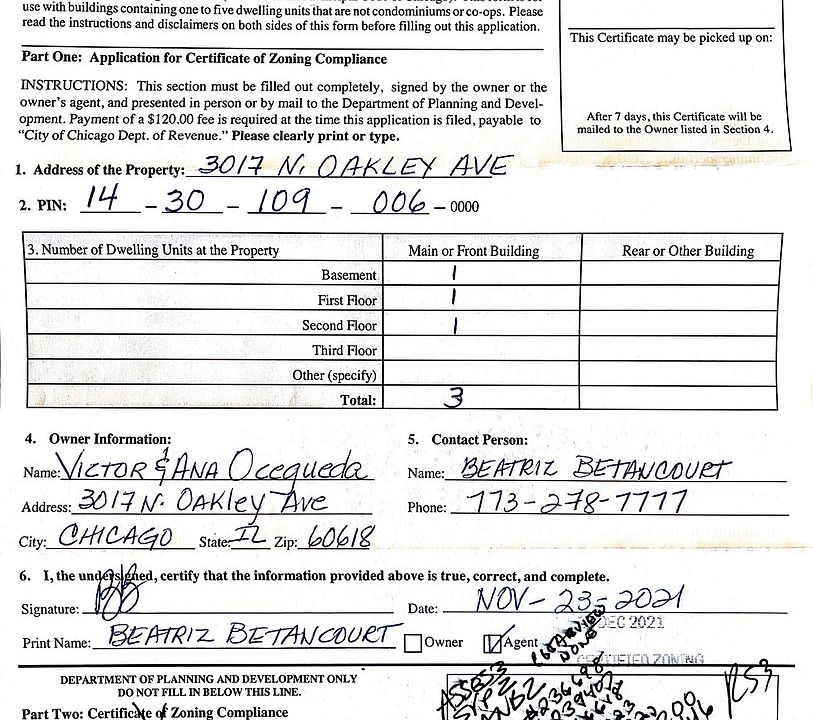 use with buildings containing one to five dwelling units that are not condominiums or co-ops. Please
read the instructions and disclaimers on both sides of this form before filling out this application.
This Certificate may be picked up on:
After 7 days, this Certificate will be
mailed to the Owner listed in Section 4.
Part One: Application for Certificate of Zoning Compliance
INSTRUCTIONS: This section must be filled out completely, signed by the owner or the
owner's agent, and presented in person or by mail to the Department of Planning and Devel-
opment. Payment of a $120.00 fee is required at the time this application is filed, payable to
"City of Chicago Dept. of Revenue." Please clearly print or type.
1. Address of the Property: 3017 N. OAKLEY AVE
2. PIN: 14 - 30 - 109 - 006 - 0000
3. Number of Dwelling Units at the Property Main or Front Building Rear or Other Building
Basement 1
First Floor 1
Second Floor 1
Third Floor
Other (specify)
Total: 3
4. Owner Information:
Name: VICTOR & ANA Ocegueda
Address: 3017 N. OAKLEY Ave
City: CHICAGO State: IL Zip: 60618
5. Contact Person:
Name: BEATRIZ BETANCOURT
Phone: 773-278-7777
6. I, the undersigned, certify that the information provided above is true, correct, and complete.
Signature: Date: NOV-23-2021
Print Name: BEATRIZ BETANCOURT Owner Agent
DEC 2021
CERTIFIED ZONING
DONE
RS3
DEPARTMENT OF PLANNING AND DEVELOPMENT ONLY
DO NOT FILL IN BELOW THIS LINE.
Part Two: Certificate of Zoning Compliance